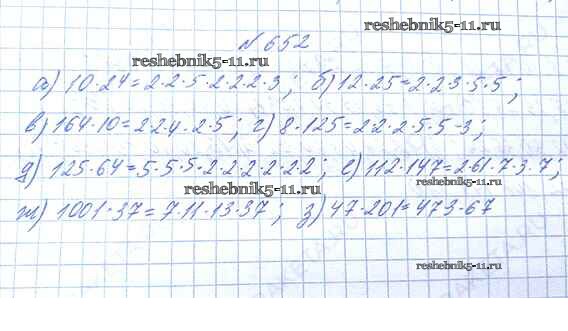 reshebnik5-11.ru
№652
reshebnik5-11.ru
а) 10·24=2·2·5·2·2·2·3; б) 12·25=2·2·3·5·5;
в) 164·10=2·2·4·2·5; г) 8·125=2·2·2·5·5·3;
д) 125·64=5·5·5·2·2·2·2·2·2; е) 112·147=2·61·7·3·7;
reshebnik5-11.ru reshebnik5-11.ru
ж) 1001·37=7·11·13·37; з) 47·201=473·67
reshebnik5-11.ru